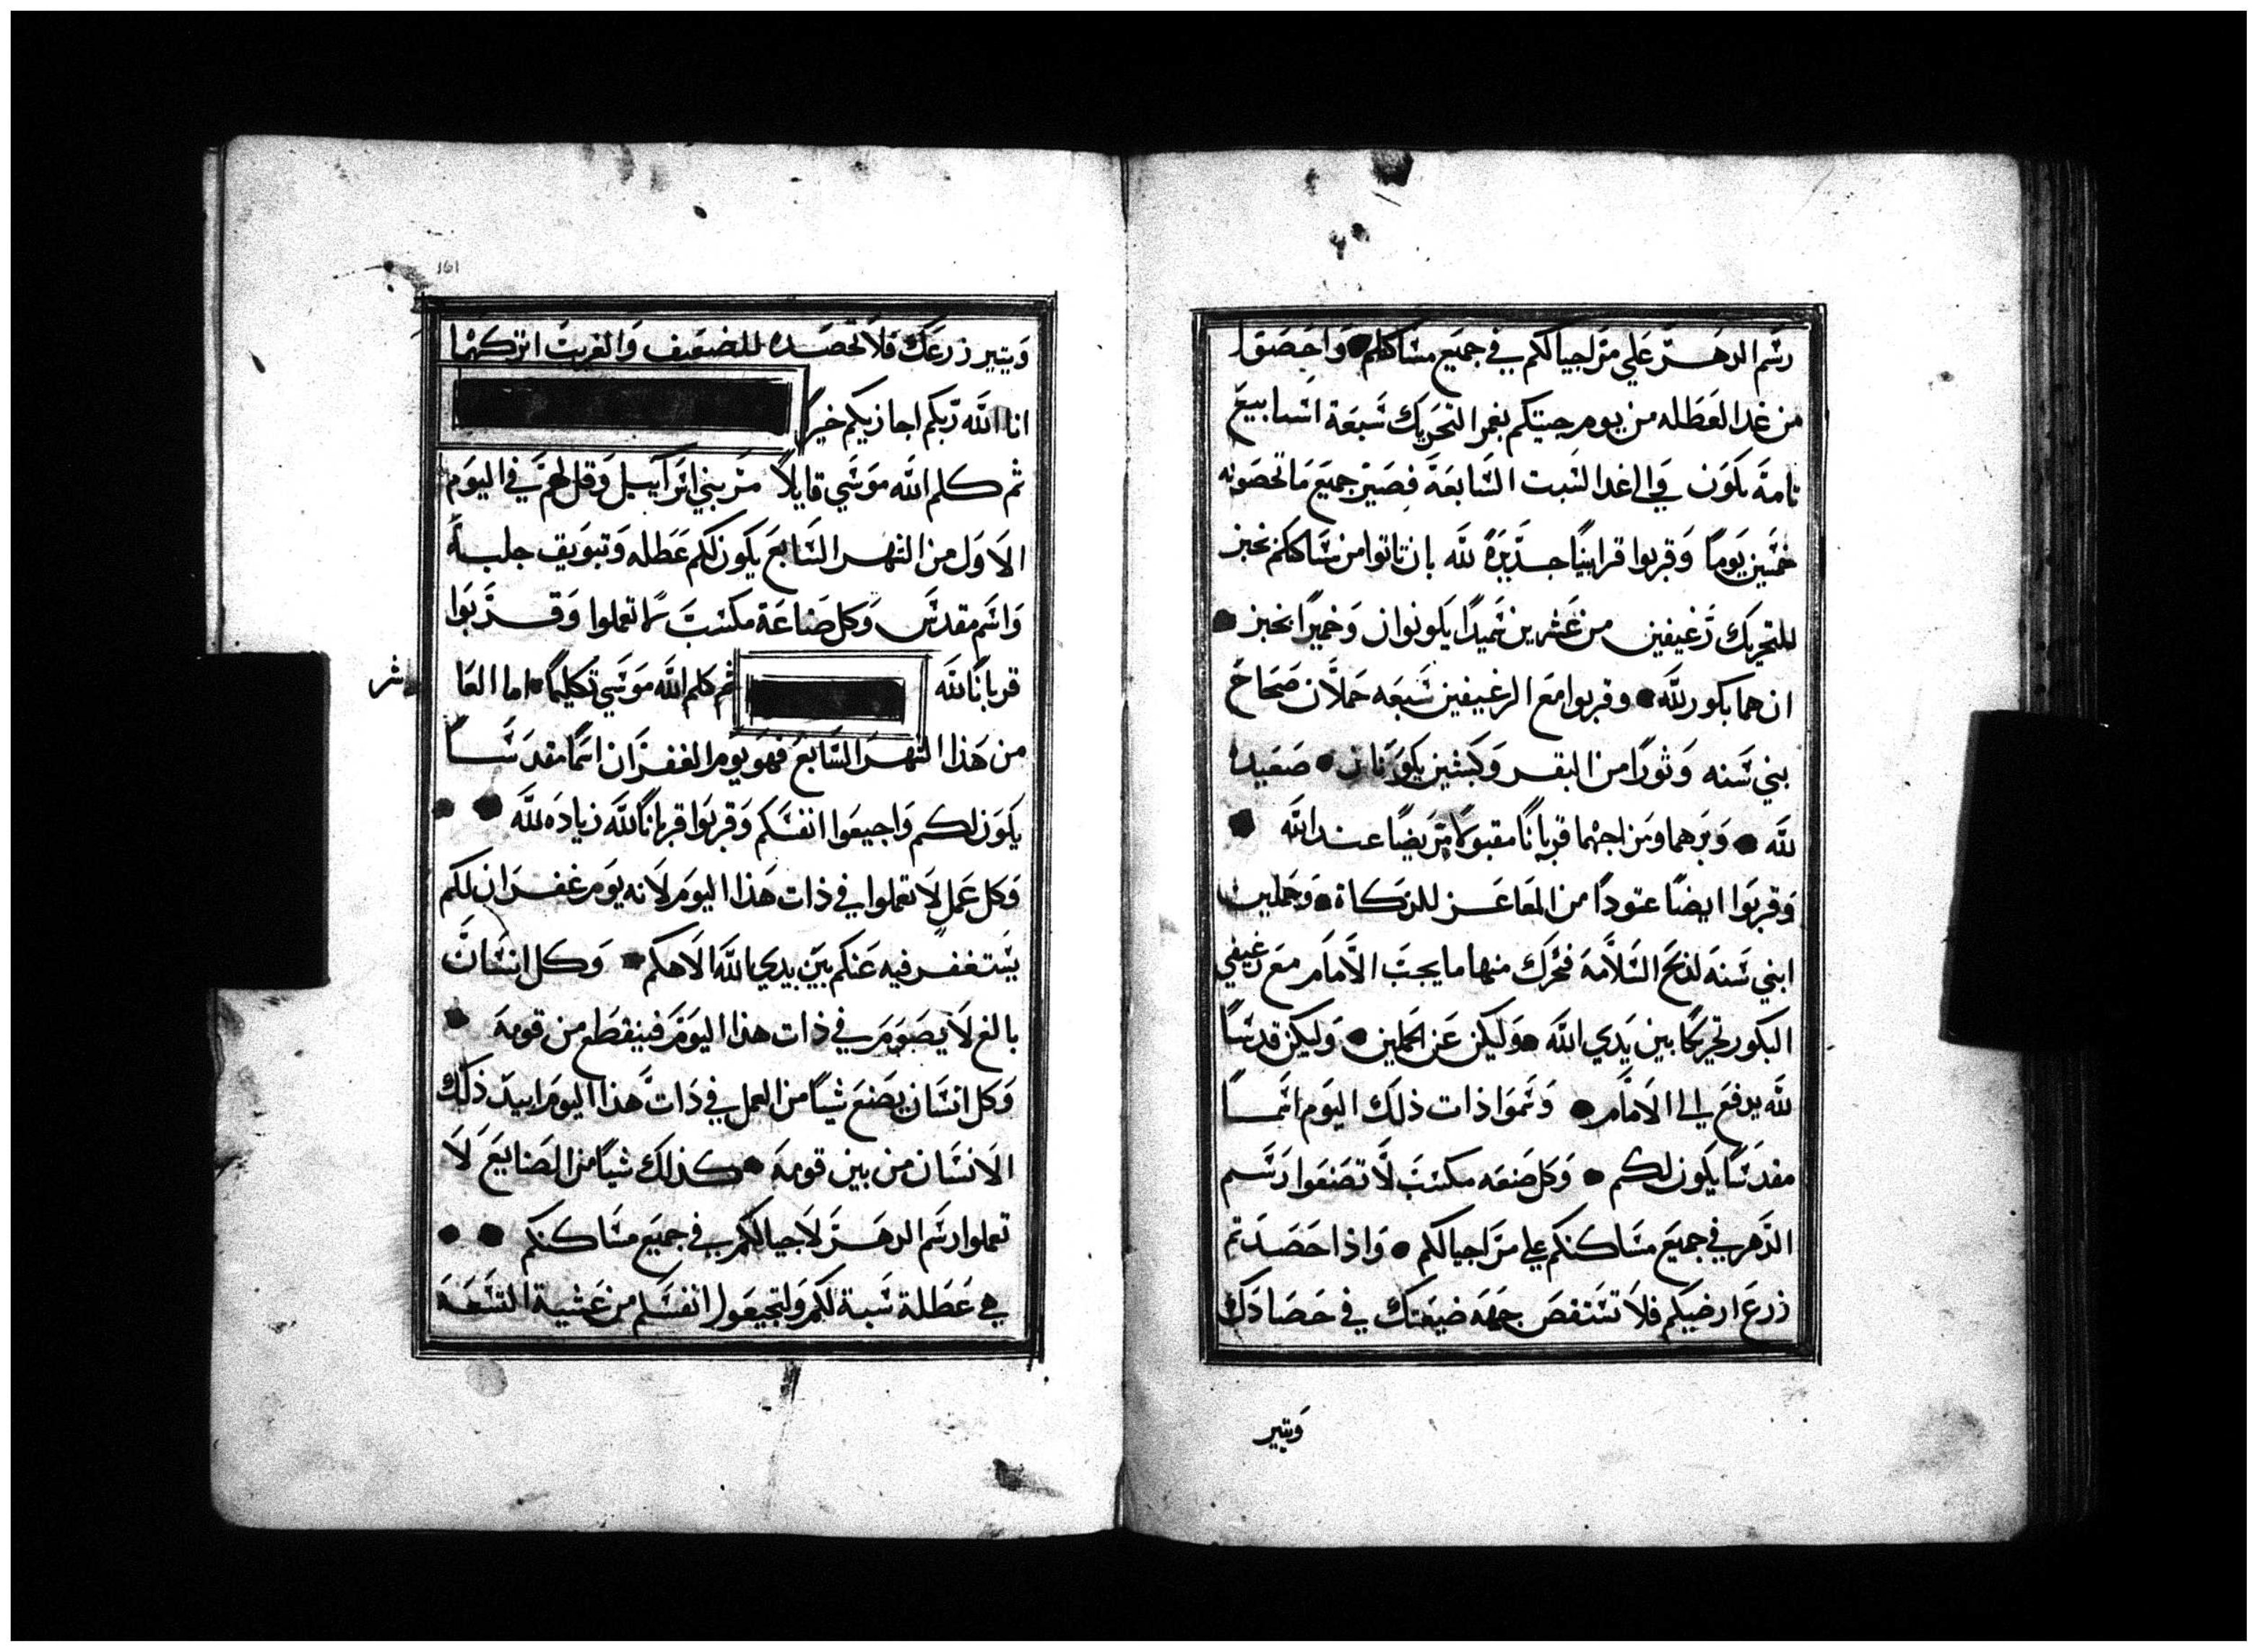 رسم الدهر علي مر اجيالكم في جميع مساكنكم واحصوا
من غد العطله من يوم جيتكم بغمر التحريك سبعة اسابيع
تامة تكون والي غد السبت السابعة فصير جميع ما تحصونه
خمسين يوما وقربوا قرابينا جديرة لله بان تاتوا من مساكنكم بخبز
للتحريك رغيفين من عشرين سميدا يكونوان وخميرا بخبز
ان هما بكور لله وقربوا مع الرغيفين سبعه حملان صحاح
بني سنه وثورا من البقر وكبشين يكونان صعيده
لله وبرهما ومزاجهما قربانا مقبولا مريضا عند الله
وقربوا ايضا عتودا من المعاعز للزكاة وحملين
ابني سنة لذبح السلامة فحرك منها ما يجب الامام مع رغيفي
البكور تحريكا بين يدي الله وليكن عن الحملين وليكن قدسا
لله يدفع الي الامام وسموا ذات ذلك اليوم اسما
مقدسا يكون لكم وكل صنعه مكسب لا تصنعوا رسم
الدهر في جميع مساكنكم علي مر اجيالكم واذا حصدتم
زرع ارضيكم فلا تستنقص جهة ضيعتك في حصادك
ويتير
161
ويتير زرعك فلا تحصده للضعيف والغريب اتركهما
انا الله ربكم اجازيكم خيرا
ثم كلم الله موسي قايلا مر بني اسرآييل وقل لهم في اليوم
الاول من الشهر السابع يكون لكم عطله وتبويق جلبة
واسم مقدس وكل صناعة مكسب لا تعملوا وقربوا
قربانا لله ثم كلم الله موسي تكليما اما العا
شر
من هذا الشهر السابع فهو يوم الغفران اسما مقدسا
يكون لكم واجيعوا انفسكم وقربوا قربانا لله زياده لله
وكل عمل لا تعملوا في ذات هذا اليوم لانه يوم غفران لكم
يستغفر فيه عنكم بين يدي الله الاهكم وكل انسان
بالغ لا يصوم في ذات هذا اليوم فينقطع من قومه
وكل انسان يصنع شيا من العمل في ذات هذا اليوم ابيد ذلك
الانسان من بين قومه كذلك شيا من الصنايع لا
تعملوا رسم الدهر لاجيالكم في جميع مساكنكم
هي عطلة سبة لكم ولتجيعوا انفسكم من عشية التسعة